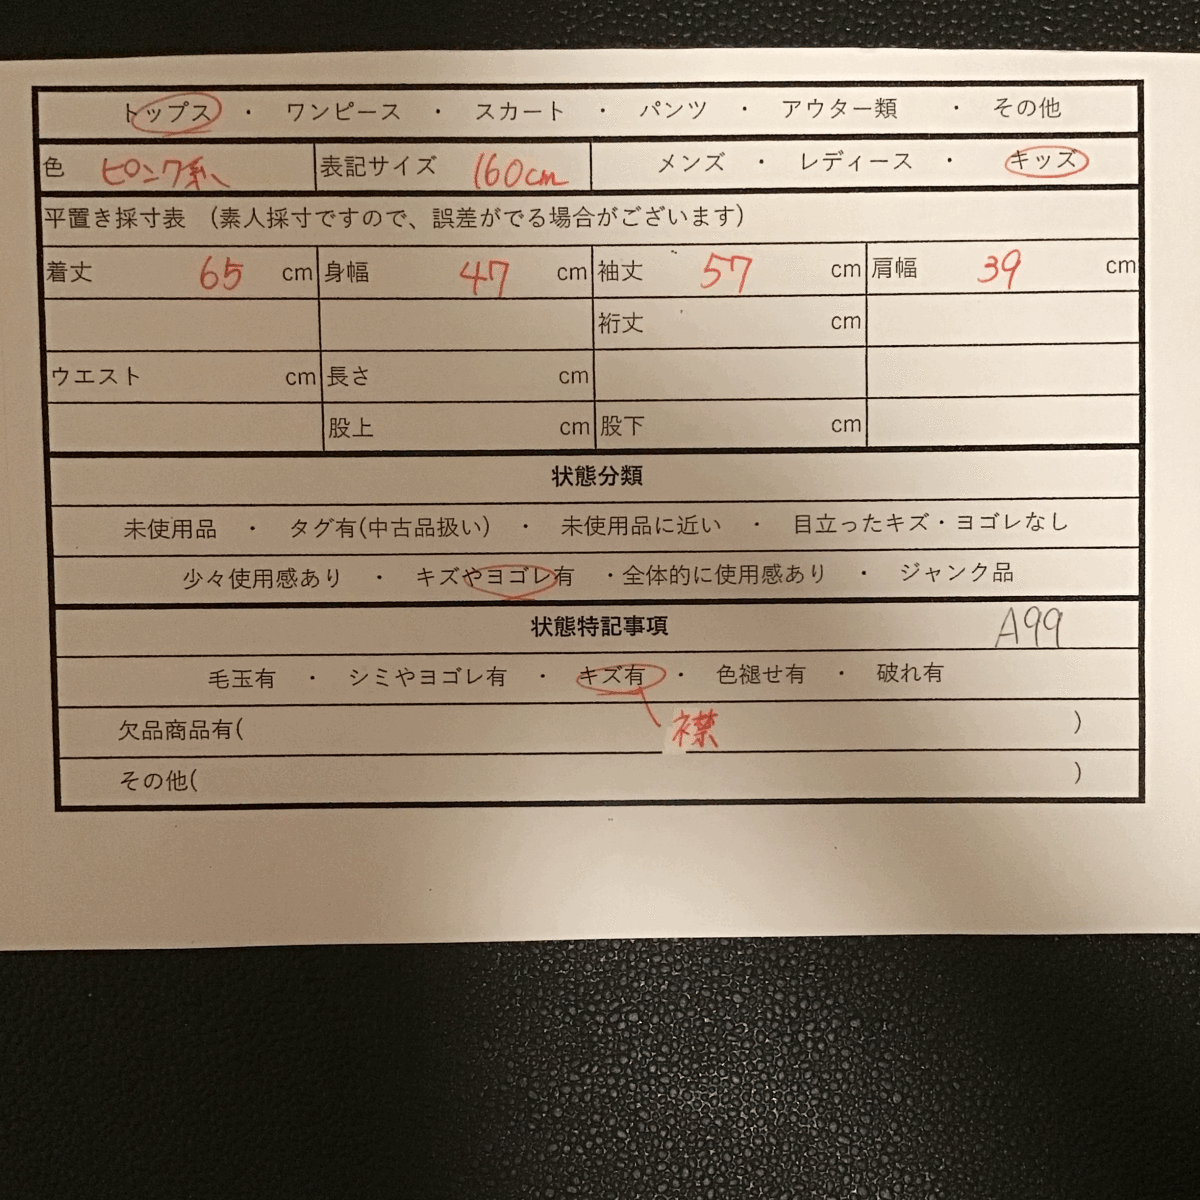 トップス ・ ワンピース ・ スカート ・ パンツ ・ アウター類 ・ その他
色 ピンク系 表記サイズ 160cm メンズ ・ レディース ・ キッズ
平置き採寸表 （素人採寸ですので、誤差がでる場合がございます）
着丈 65 cm 身幅 47 cm 袖丈 57 cm 肩幅 39 cm
裄丈 cm
ウエスト cm 長さ cm
股上 cm 股下 cm
状態分類
未使用品 ・ タグ有(中古品扱い) ・ 未使用品に近い ・ 目立ったキズ・ヨゴレなし
少々使用感あり ・ キズやヨゴレ有 ・全体的に使用感あり ・ ジャンク品
状態特記事項 A99
毛玉有 ・ シミやヨゴレ有 ・ キズ有 ・ 色褪せ有 ・ 破れ有
欠品商品有( 襟 )
その他( )